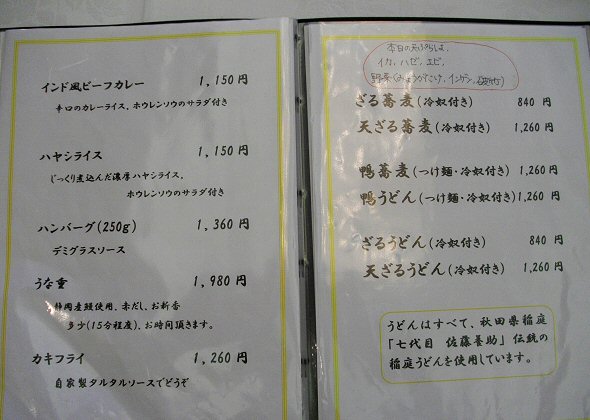 インド風ビーフカレー 1,150円
辛口のカレーライス、ホウレンソウのサラダ付き
ハヤシライス 1,150円
じっくり煮込んだ濃厚ハヤシライス、
ホウレンソウのサラダ付き
ハンバーグ(250g) 1,360円
デミグラスソース
うな重 1,980円
静岡産鰻使用、赤だし、お新香
多少(15分程度)、お時間頂きます。
カキフライ 1,260円
自家製タルタルソースでどうぞ
本日の天ぷらは、
イカ、ハゼ、エビ、
野菜(みょうがたけ、インゲン、
ざる蕎麦(冷奴付き) 840円
天ざる蕎麦(冷奴付き) 1,260円
鴨蕎麦(つけ麺・冷奴付き) 1,260円
鴨うどん(つけ麺・冷奴付き) 1,260円
ざるうどん(冷奴付き) 840円
天ざるうどん(冷奴付き) 1,260円
うどんはすべて、秋田県稲庭
「七代目 佐藤養助」伝統の
稲庭うどんを使用しています。